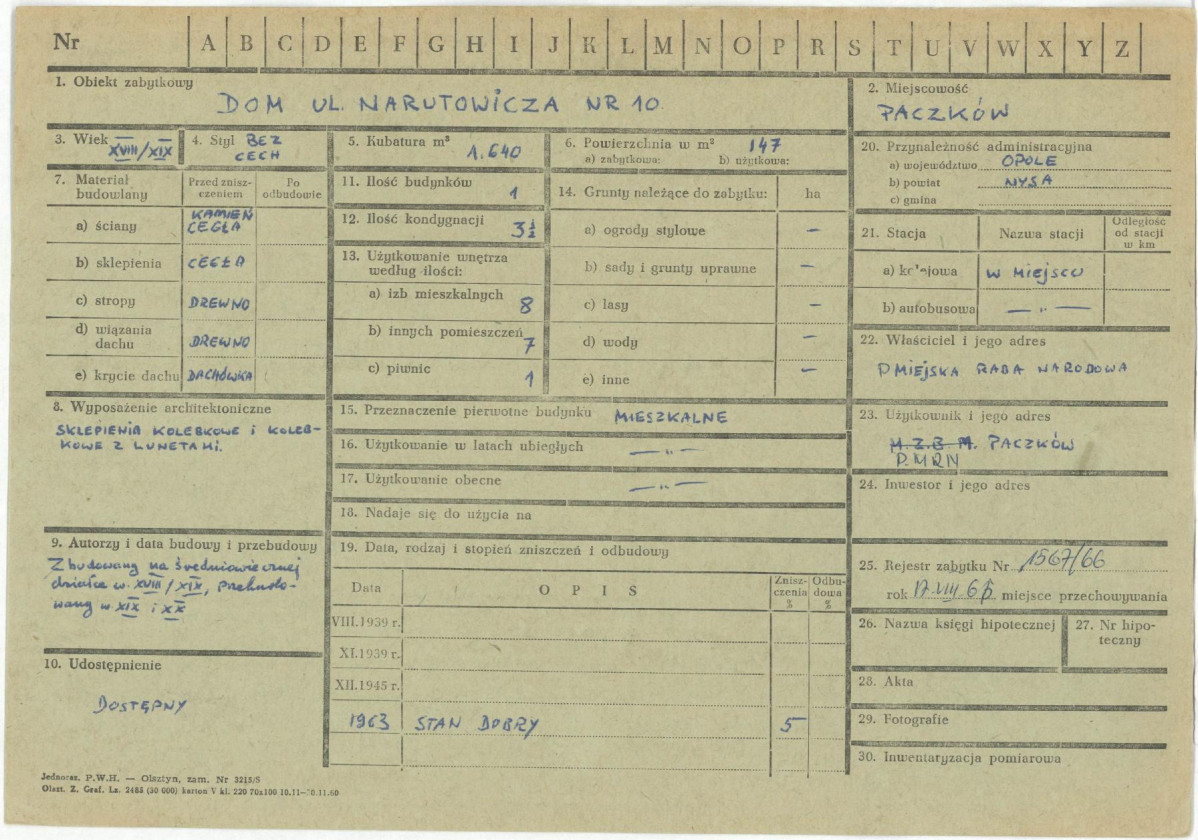 Nr A B C D E F G H I J K L M N O P R S T U V W X Y Z
1. Obiekt zabytkowy
DOM UL. NARUTOWICZA NR 10.
2. Miejscowość
PACZKÓW
3. Wiek XVIII/XIX
4. Styl BEZ
CECH
5. Kubatura m³
1.640
6. Powierzchnia w m² 147
a) zabytkowa: b) użytkowa:
7. Materiał
budowlany
Przed znisz-
czeniem
Po
odbudowie
a) ściany KAMIEŃ
CEGŁA
b) sklepienia CEGŁA
c) stropy DREWNO
d) wiązania
dachu DREWNO
e) krycie dachu DACHÓWKA
8. Wyposażenie architektoniczne
SKLEPIENIA KOLEBKOWE I KOLEB-
KOWE Z LUNETAMI.
9. Autorzy i data budowy i przebudowy
Zbudowany na średniowiecznej
działce w. XVIII/XIX, przebudo-
wany w XIX i XX
10. Udostępnienie
DOSTĘPNY
11. Ilość budynków
1
12. Ilość kondygnacji
3½
13. Użytkowanie wnętrza
według ilości:
a) izb mieszkalnych 8
b) innych pomieszczeń 7
c) piwnic 1
14. Grunty należące do zabytku: ha
a) ogrody stylowe –
b) sady i grunty uprawne –
c) lasy –
d) wody –
e) inne –
15. Przeznaczenie pierwotne budynku MIESZKALNE
16. Użytkowanie w latach ubiegłych — „ —
17. Użytkowanie obecne — „ —
18. Nadaje się do użycia na
19. Data, rodzaj i stopień zniszczeń i odbudowy
Data OPIS Znisz-
czenia
% Odbu-
dowa
%
VIII.1939 r.
XI.1939 r.
XII.1945 r.
1963 STAN DOBRY 5
20. Przynależność administracyjna
a) województwo OPOLE
b) powiat NYSA
c) gmina
21. Stacja Nazwa stacji Odległość
od stacji
w km
a) kolejowa W MIEJSCU
b) autobusowa — „ —
22. Właściciel i jego adres
P MIEJSKA RADA NARODOWA
23. Użytkownik i jego adres
M.Z.B.M. PACZKÓW
P.MRN
24. Inwestor i jego adres
25. Rejestr zabytku Nr 1567/66
rok 17.VIII 66 miejsce przechowywania
26. Nazwa księgi hipotecznej
27. Nr hipo-
teczny
28. Akta
29. Fotografie
30. Inwentaryzacja pomiarowa
Jednoraz. P.W.H. — Olsztyn, zam. Nr 3215/S
Olszt. Z. Graf. Lz. 2485 (30 000) karton V kl. 220 70x100